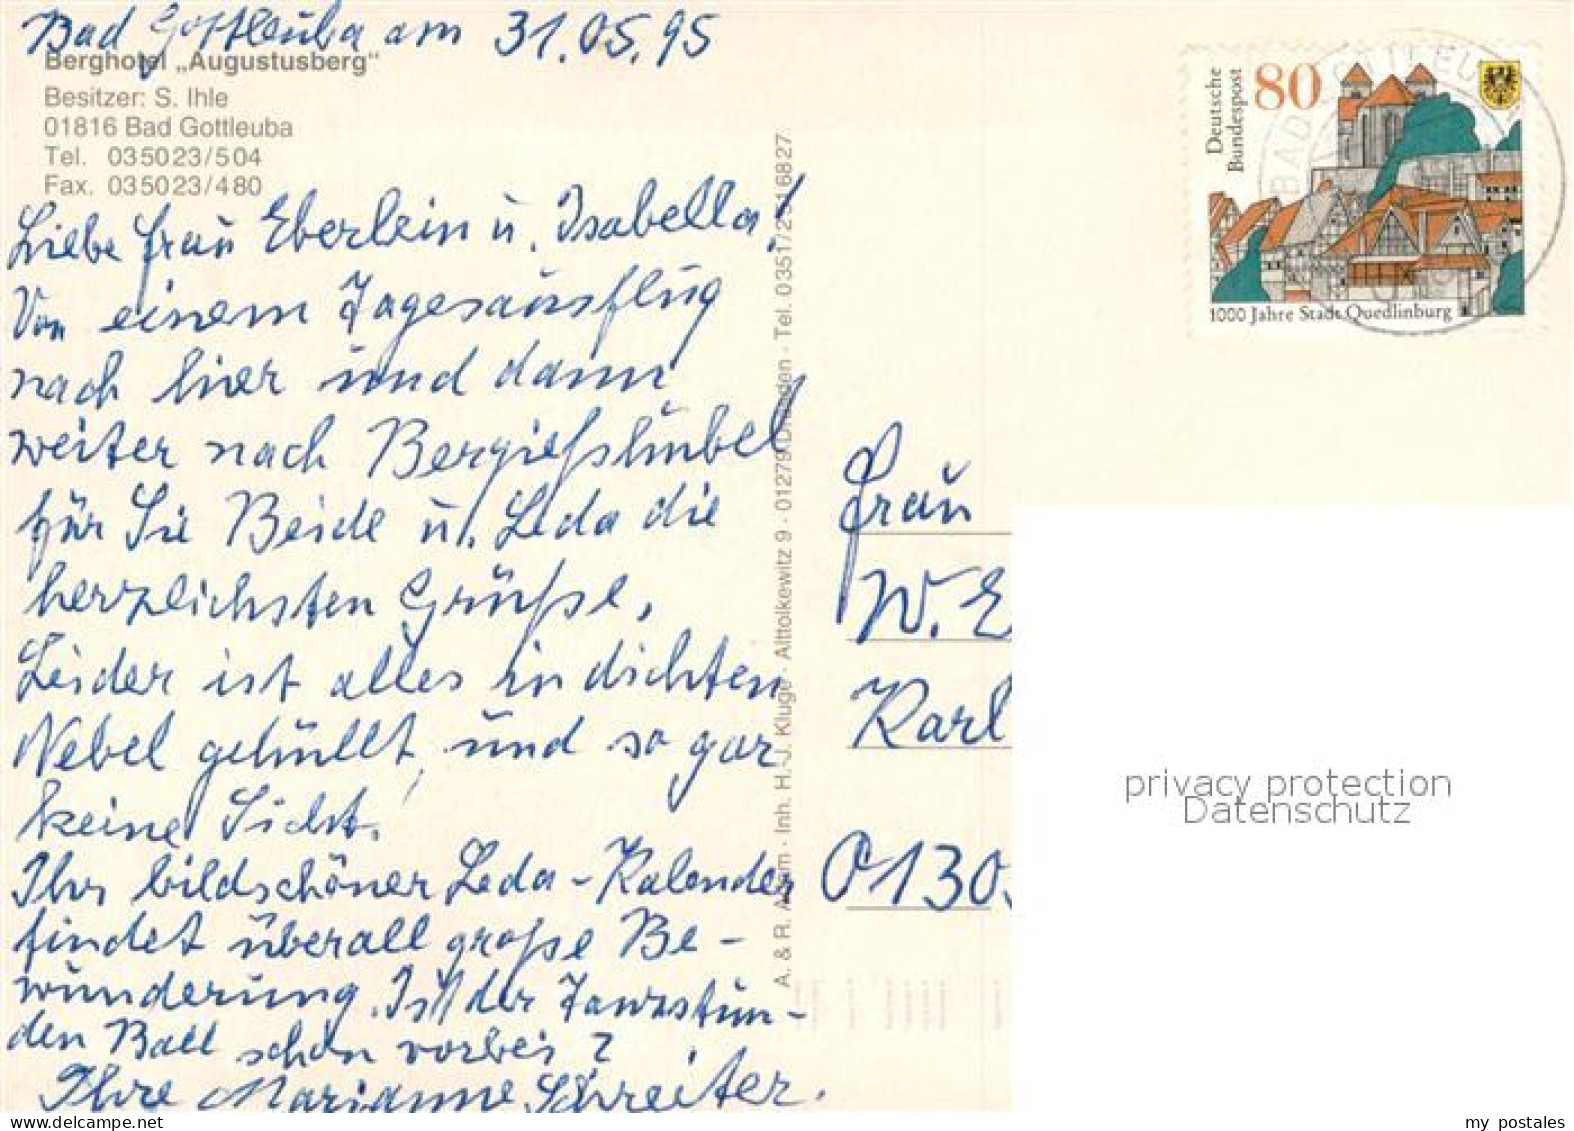 Bad Gottleuba am 31.05.95
Berghotel „Augustusberg“
Besitzer: S. Ihle
01816 Bad Gottleuba
Tel. 035023/504
Fax. 035023/480
Liebe Frau Eberlein u. Isabella!
Von einem Tagesausflug
nach hier und dann
weiter nach Bergießhübel
für Sie Beide u. Leda die
herzlichsten Grüße,
Leider ist alles in dichten
Nebel gehüllt, und so gar
keine Sicht.
Ihr bildschöner Leda-Kalender
findet überall große Be-
wunderung. Ist der Tanzstun-
den Ball schon vorbei?
Ihre Marianne Schreiter.
A. & R. Adam · Inh. H.-J. Kluge · Alttolkewitz 9 · 01279 Dresden · Tel. 0351/2516827
Deutsche
Bundespost
80
1000 Jahre Stadt Quedlinburg
BAD GOTTLEU
Frau
W. E
Karl
0130
privacy protection
Datenschutz
my postales